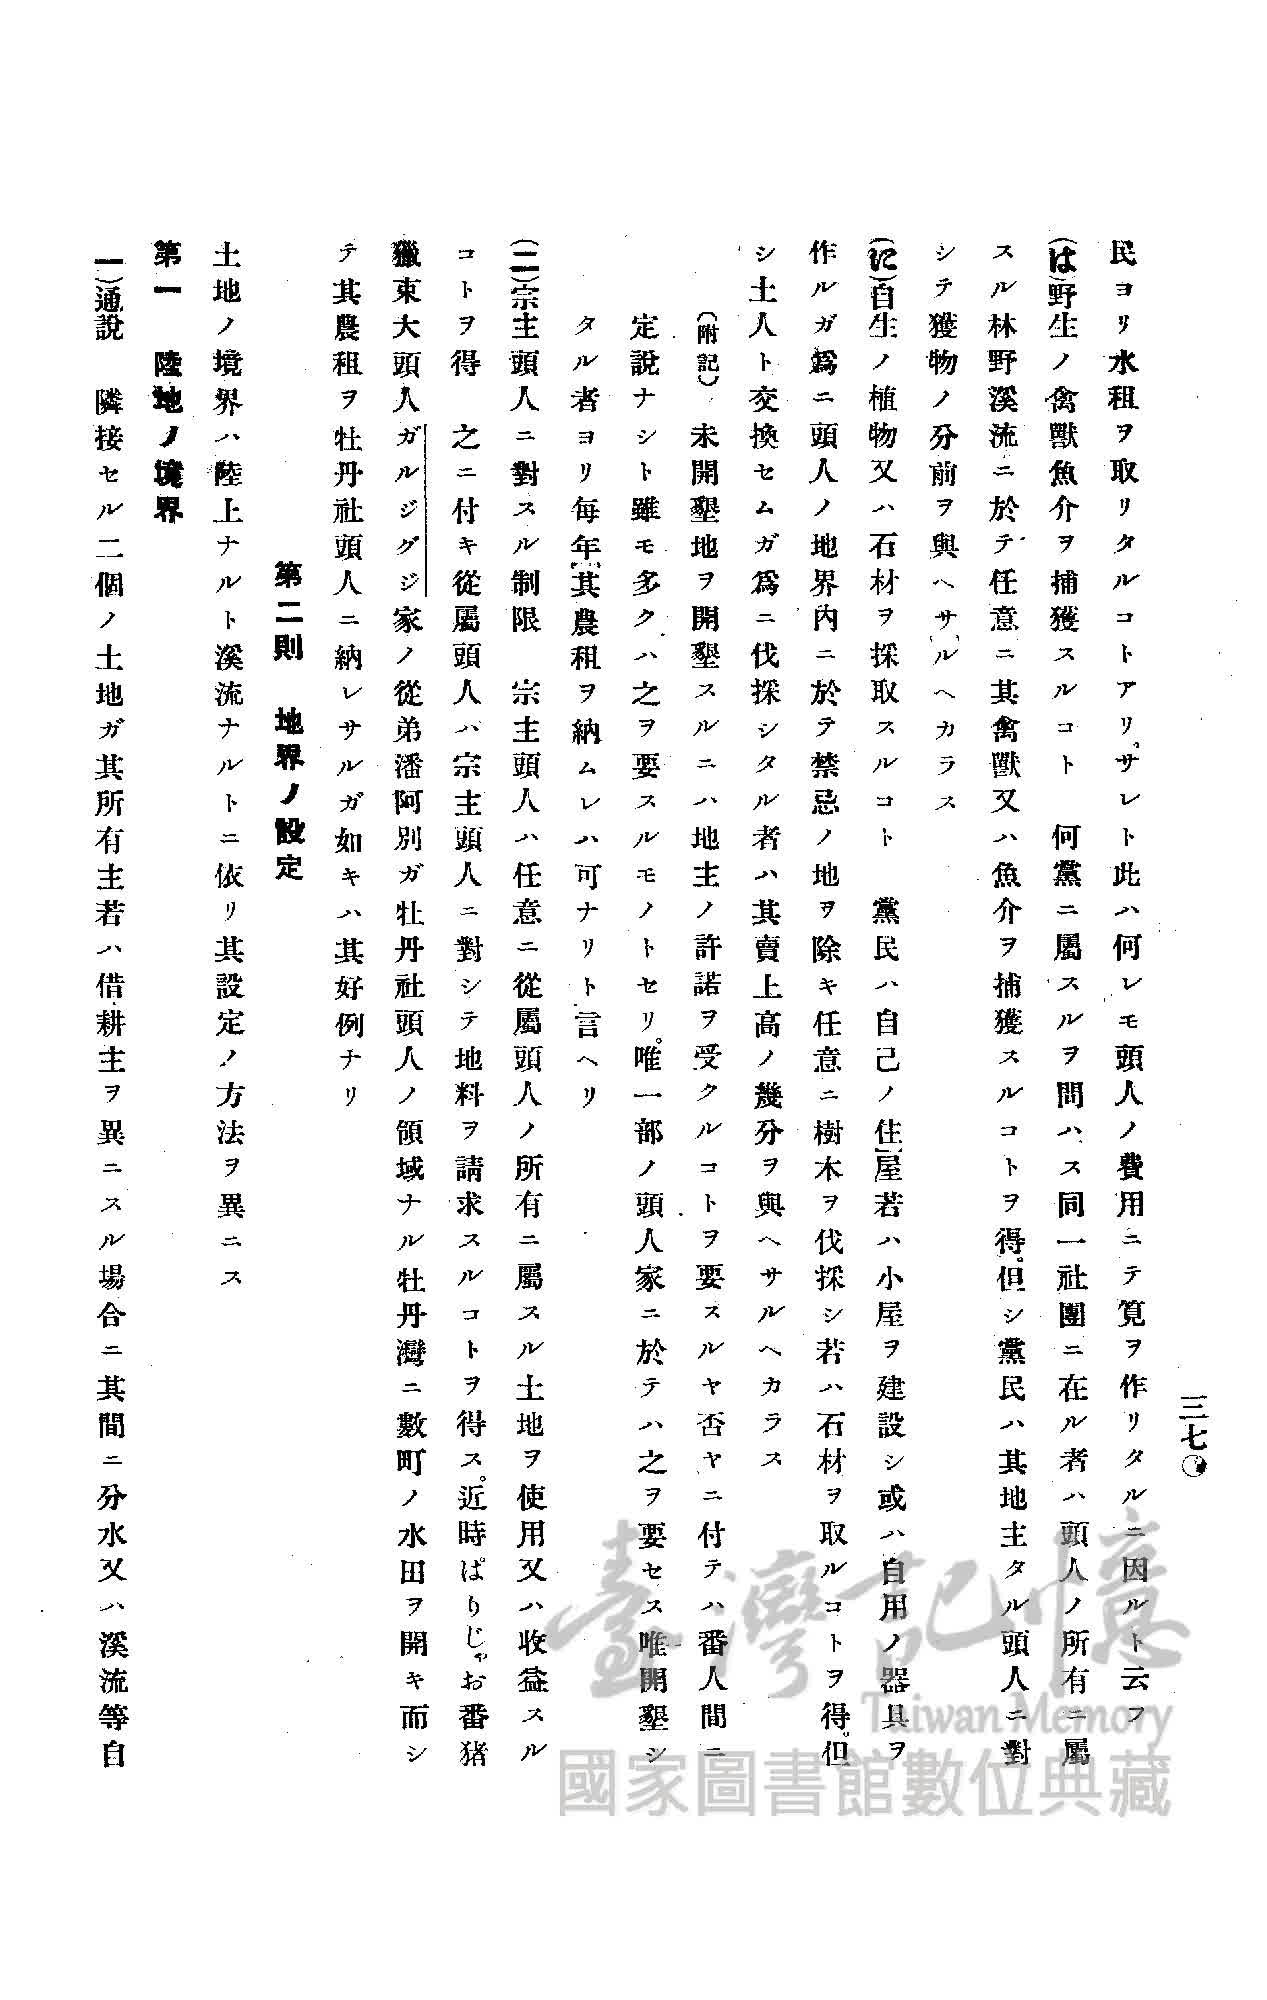 三七〇
民ヨリ水租ヲ取リタルコトアリ。サレト此ハ何レモ頭人ノ費用ニテ筧ヲ作リタルニ因ルト云フ
(は)野生ノ禽獸魚介ヲ捕獲スルコト　何黨ニ屬スルヲ問ハス同一社團ニ在ル者ハ頭人ノ所有ニ屬
スル林野溪流ニ於テ任意ニ其禽獸又ハ魚介ヲ捕獲スルコトヲ得。但シ黨民ハ其地主タル頭人ニ對
シテ獲物ノ分前ヲ與ヘサルヘカラス
(に)自生ノ植物又ハ石材ヲ採取スルコト　黨民ハ自己ノ住屋若ハ小屋ヲ建設シ或ハ自用ノ器具ヲ
作ルガ爲ニ頭人ノ地界內ニ於テ禁忌ノ地ヲ除キ任意ニ樹木ヲ伐採シ若ハ石材ヲ取ルコトヲ得。但
シ土人ト交換セムガ爲ニ伐採シタル者ハ其賣上高ノ幾分ヲ與ヘサルヘカラス
(附記)　未開墾地ヲ開墾スルニハ地主ノ許諾ヲ受クルコトヲ要スルヤ否ヤニ付テハ番人間ニ
定說ナシト雖モ多クハ之ヲ要スルモノトセリ。唯一部ノ頭人家ニ於テハ之ヲ要セス唯開墾シ
タル者ヨリ每年其農租ヲ納ムレハ可ナリト言ヘリ
(二)宗主頭人ニ對スル制限　宗主頭人ハ任意ニ從屬頭人ノ所有ニ屬スル土地ヲ使用又ハ收益スル
コトヲ得　之ニ付キ從屬頭人ハ宗主頭人ニ對シテ地料ヲ請求スルコトヲ得ス。近時ぱりじゃお番猪
獵束大頭人ガルジグジ家ノ從弟潘阿別ガ牡丹社頭人ノ領域ナル牡丹灣ニ數町ノ水田ヲ開キ而シ
テ其農租ヲ牡丹社頭人ニ納レサルガ如キハ其好例ナリ
第二則　地界ノ設定
土地ノ境界ハ陸上ナルト溪流ナルトニ依リ其設定ノ方法ヲ異ニス
第一　陸地ノ境界
一)通說　隣接セル二個ノ土地ガ其所有主若ハ借耕主ヲ異ニスル場合ニ其間ニ分水又ハ溪流等自
臺灣記憶
Taiwan Memory
國家圖書館數位典藏